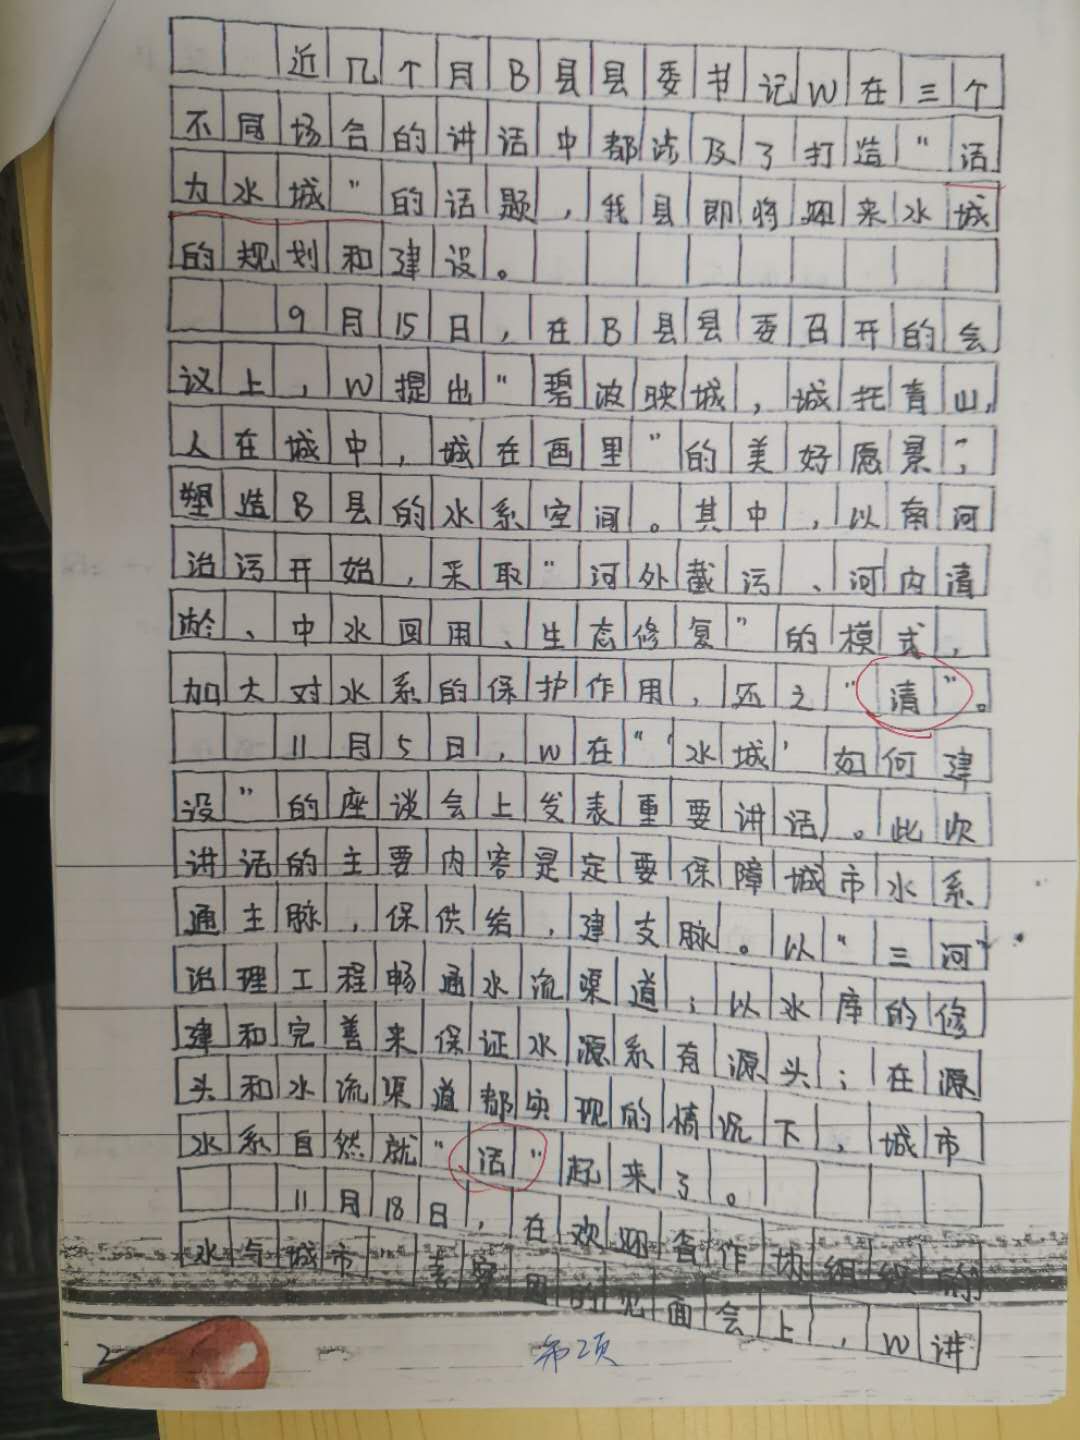 近几个月B县县委书记W在三个
不同场合的讲话中都涉及了打造“活
力水城”的话题,我县即将迎来水城
的规划和建设。
9月15日,在B县县委召开的会
议上,W提出“碧波映城,城托青山,
人在城中,城在画里”的美好愿景,
塑造B县的水系空间。其中,以南河
治污开始,采取“河外截污、河内清
淤、中水回用、生态修复”的模式,
加大对水系的保护作用,还之“清”。
11月5日,W在“‘水城’如何建
设”的座谈会上发表重要讲话。此次
讲话的主要内容是定要保障城市水系
通主脉,保供给,建支脉。以“三河”
治理工程畅通水流渠道;以水库的修
建和完善来保证水源系有源头;在源
头和水流渠道都实现的情况下,城市
水系自然就“活”起来了。
11月18日,在欢迎省作协组织的
水与城市 用的见面会上,W讲
2
第2页